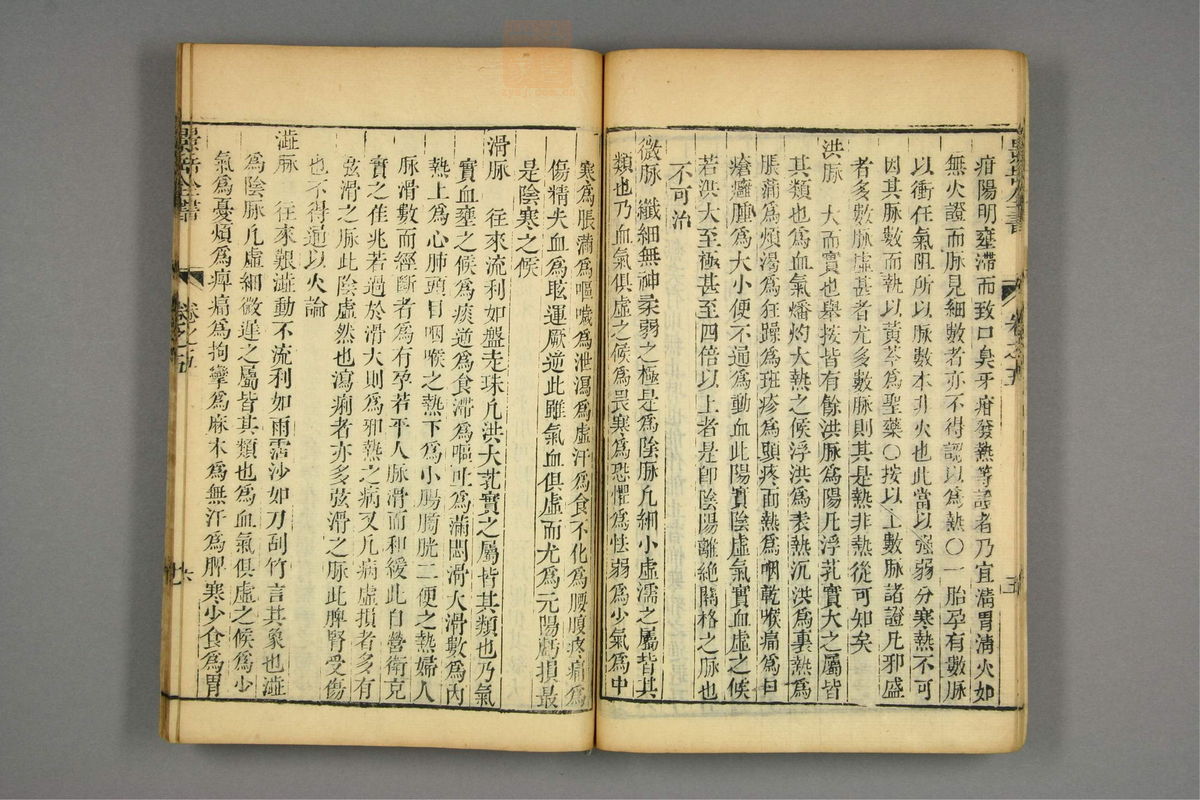 疳陽明壅滯而致口臭牙疳發熱等證者乃宜清胃清火如
無火證而脉見細數者亦不得認以爲熱○一胎孕有數脉
以衝任氣阻所以脉數本非火也此當以強弱分寒熱不可
因其脉數而執以黃芩爲聖藥○按以上數脉諸證凡邪盛
者多數脉虛甚者尤多數脉則其是熱非熱從可知矣
洪脉　大而實也舉按皆有餘洪脉爲陽凡浮芤實大之屬皆
其類也爲血氣燔灼大熱之候浮洪爲表熱沉洪爲裏熱爲
脹滿爲煩渴爲狂躁爲斑疹爲頭疼面熱爲咽乾喉痛爲口
瘡癰腫爲大小便不通爲動血此陽實陰虛氣實血虛之候
若洪大至極甚至四倍以上者是卽陰陽離絕關格之脉也
不可治
微脉　纖細無神柔弱之極是爲陰脉凡細小虛濡之屬皆其
類也乃血氣俱虛之候爲畏寒爲恐懼爲怯弱爲少氣爲中
寒爲脹滿爲嘔噦爲泄瀉爲虛汗爲食不化爲腰腹疼痛爲
傷精失血爲眩運厥逆此雖氣血俱虛而尤爲元陽虧損最
是陰寒之候
滑脉　往來流利如盤走珠凡洪大芤實之屬皆其類也乃氣
實血壅之候爲痰逆爲食滯爲嘔吐爲滿悶滑大滑數爲內
熱上爲心肺頭目咽喉之熱下爲小腸膀胱二便之熱婦人
脉滑數而經斷者爲有孕若平人脉滑而和緩此自營衛充
實之佳兆若過於滑大則爲邪熱之病又凡病虛損者多有
弦滑之脉此陰虛然也瀉痢者亦多弦滑之脉此脾腎受傷
也不得通以火論
澀脉　往來艱澀動不流利如雨霑沙如刀刮竹言其象也澀
爲陰脉凡虛細微遲之屬皆其類也爲血氣俱虛之候爲少
氣爲憂煩爲痺痛爲拘攣爲麻木爲無汗爲脾寒少食爲胃
景岳全書
卷之五